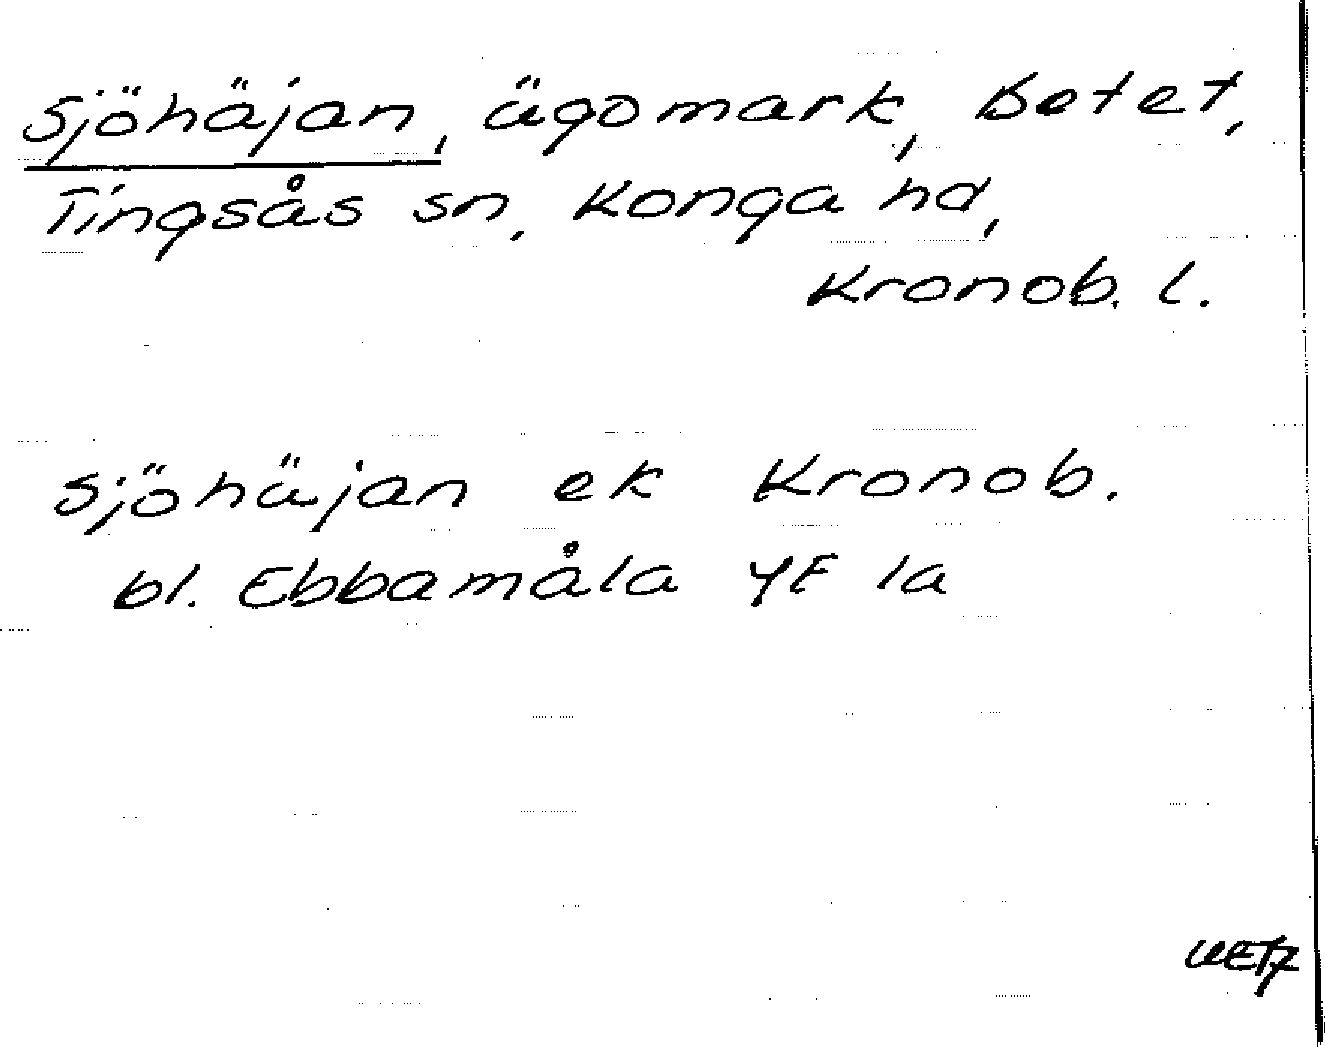 Sjöhäjan, ägomark, betet,
Tingsås sn, Konga hd,
Kronob. l.
Sjöhäjan ek Kronob.
bl. Ebbamåla 4F 1a